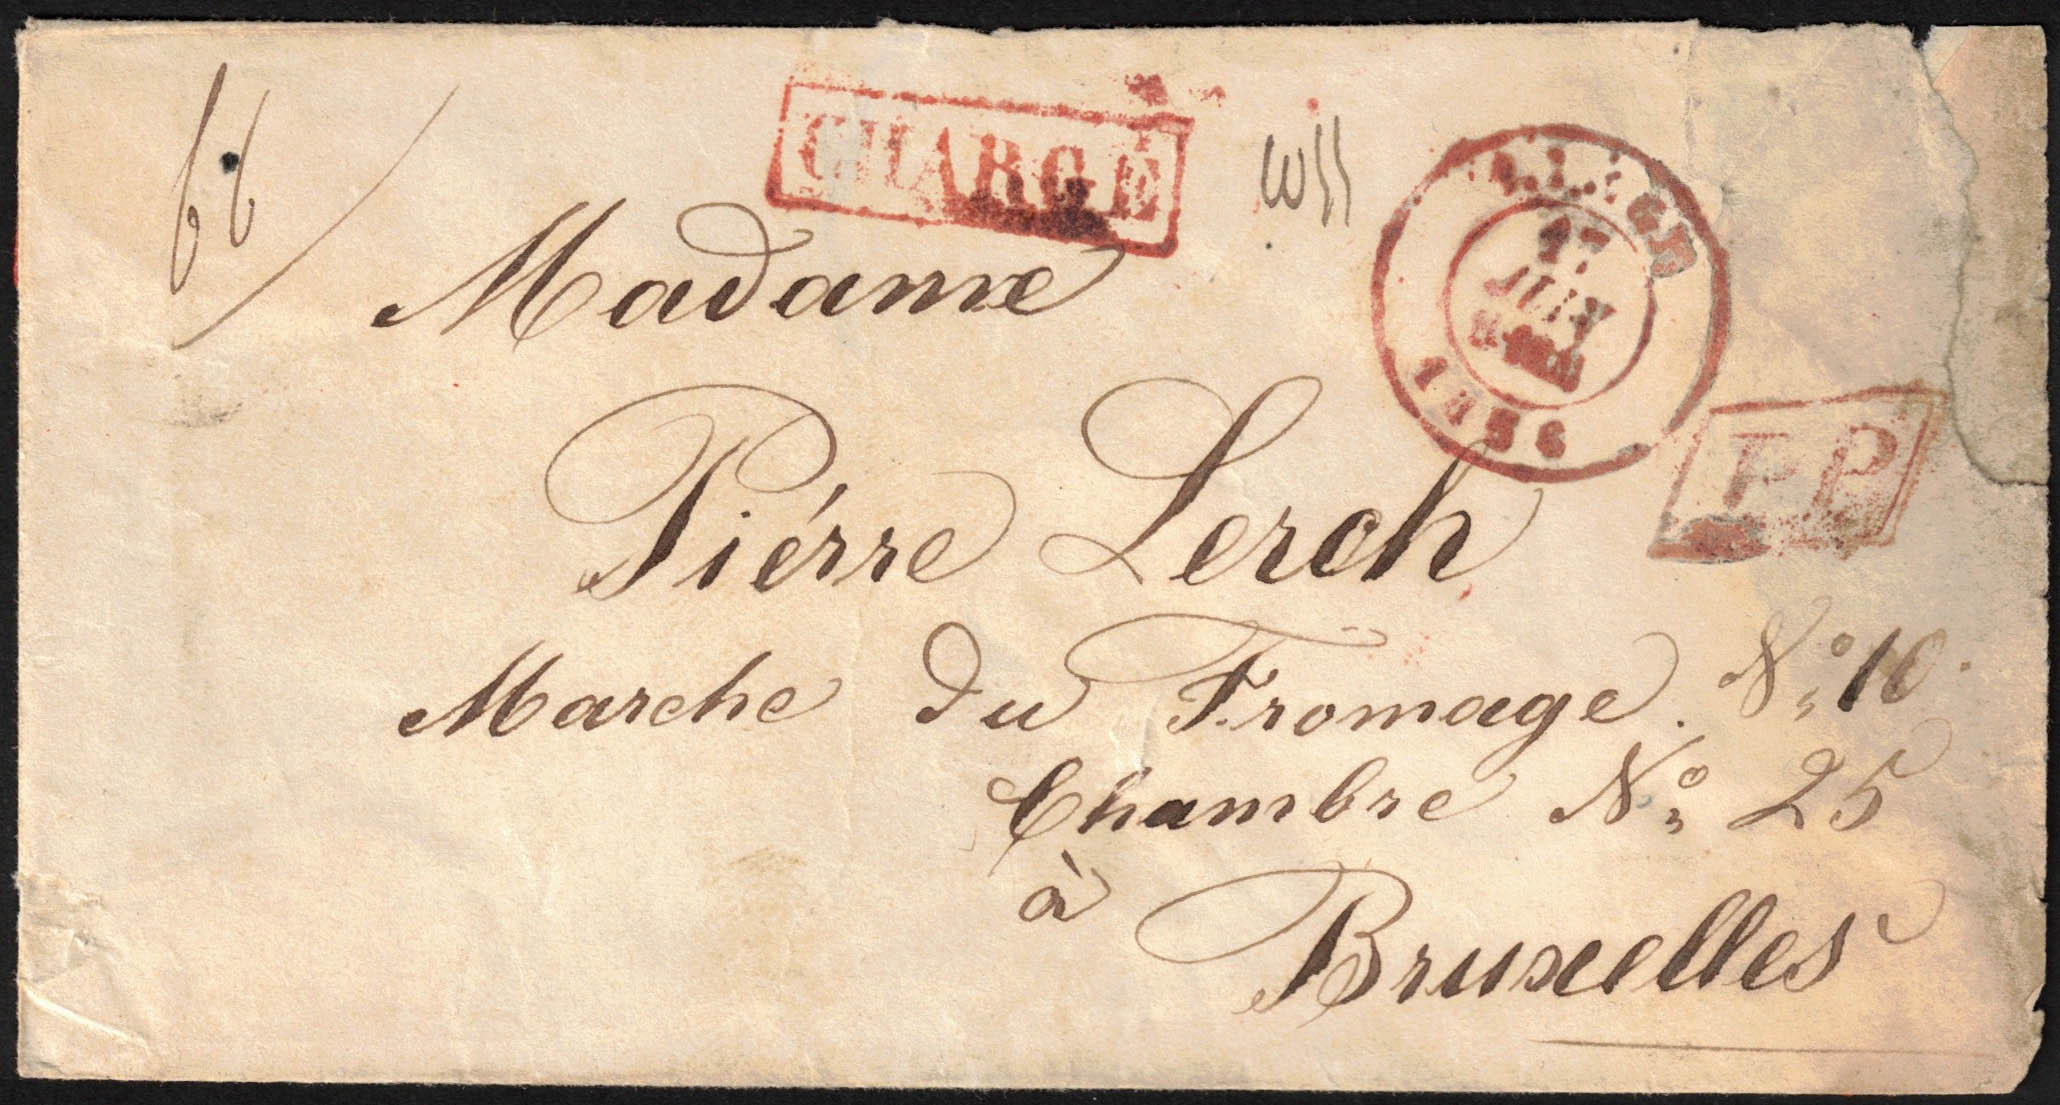 66
CHARGÉ
17
JUIN
P.P.
Madame
Piérre Lerch
Marche du Fromage. No: 10.
Chambre No: 25
à
Bruxelles